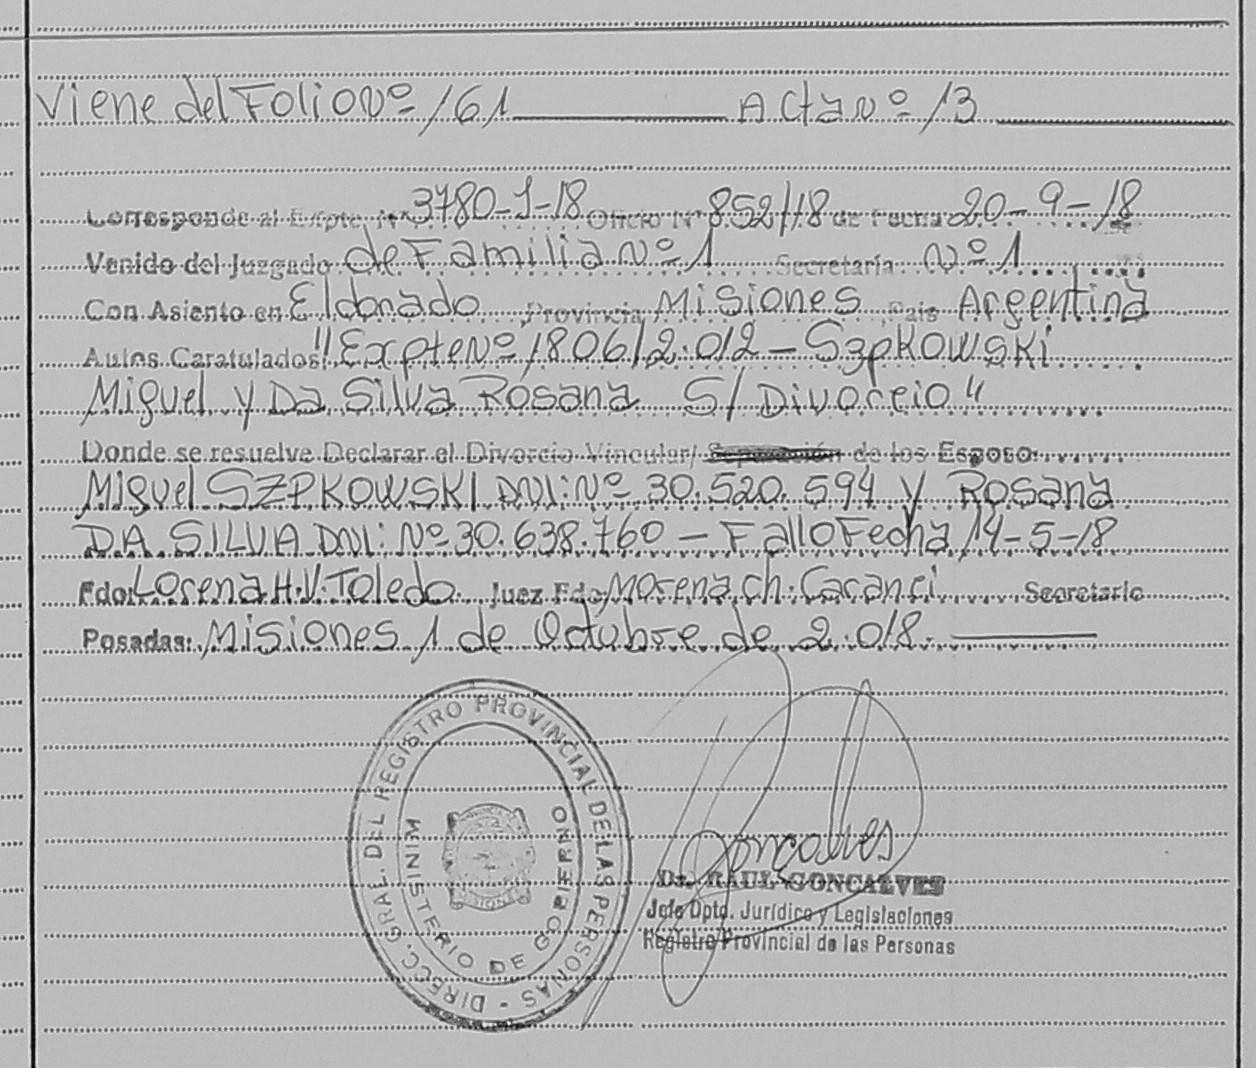 Viene del Folio Nº 161 Acta Nº 13
Corresponde al Expte. Nº 3780-J-18 Oficio Nº 852/18 de Fecha 20-9-18
Venido del Juzgado de Familia Nº 1 Secretaría Nº 1
Con Asiento en Eldorado Provincia Misiones País Argentina
Autos Caratulados "Expte Nº 1806/2.012 - Szpkowski
Miguel y Da Silva Rosana S/Divorcio"
Donde se resuelve Declarar el Divorcio Vincular/ Separación de los Esposo:
Miguel SZPKOWSKI DNI: Nº 30.520.594 y Rosana
DA SILVA DNI: Nº 30.638.760 - Fallo Fecha 14-5-18
Fdo: Lorena H.V. Toledo Juez Fdo: Morena Ch. Caranci Secretario
Posadas: Misiones 1 de Octubre de 2.018.
DIRECC. GRAL. DEL REGISTRO PROVINCIAL DE LAS PERSONAS -
MINISTERIO DE GOBIERNO
MISIONES
Goncalves
Dr. RAUL GONCALVES
Jefe Dpto. Jurídico y Legislaciones
Registro Provincial de las Personas